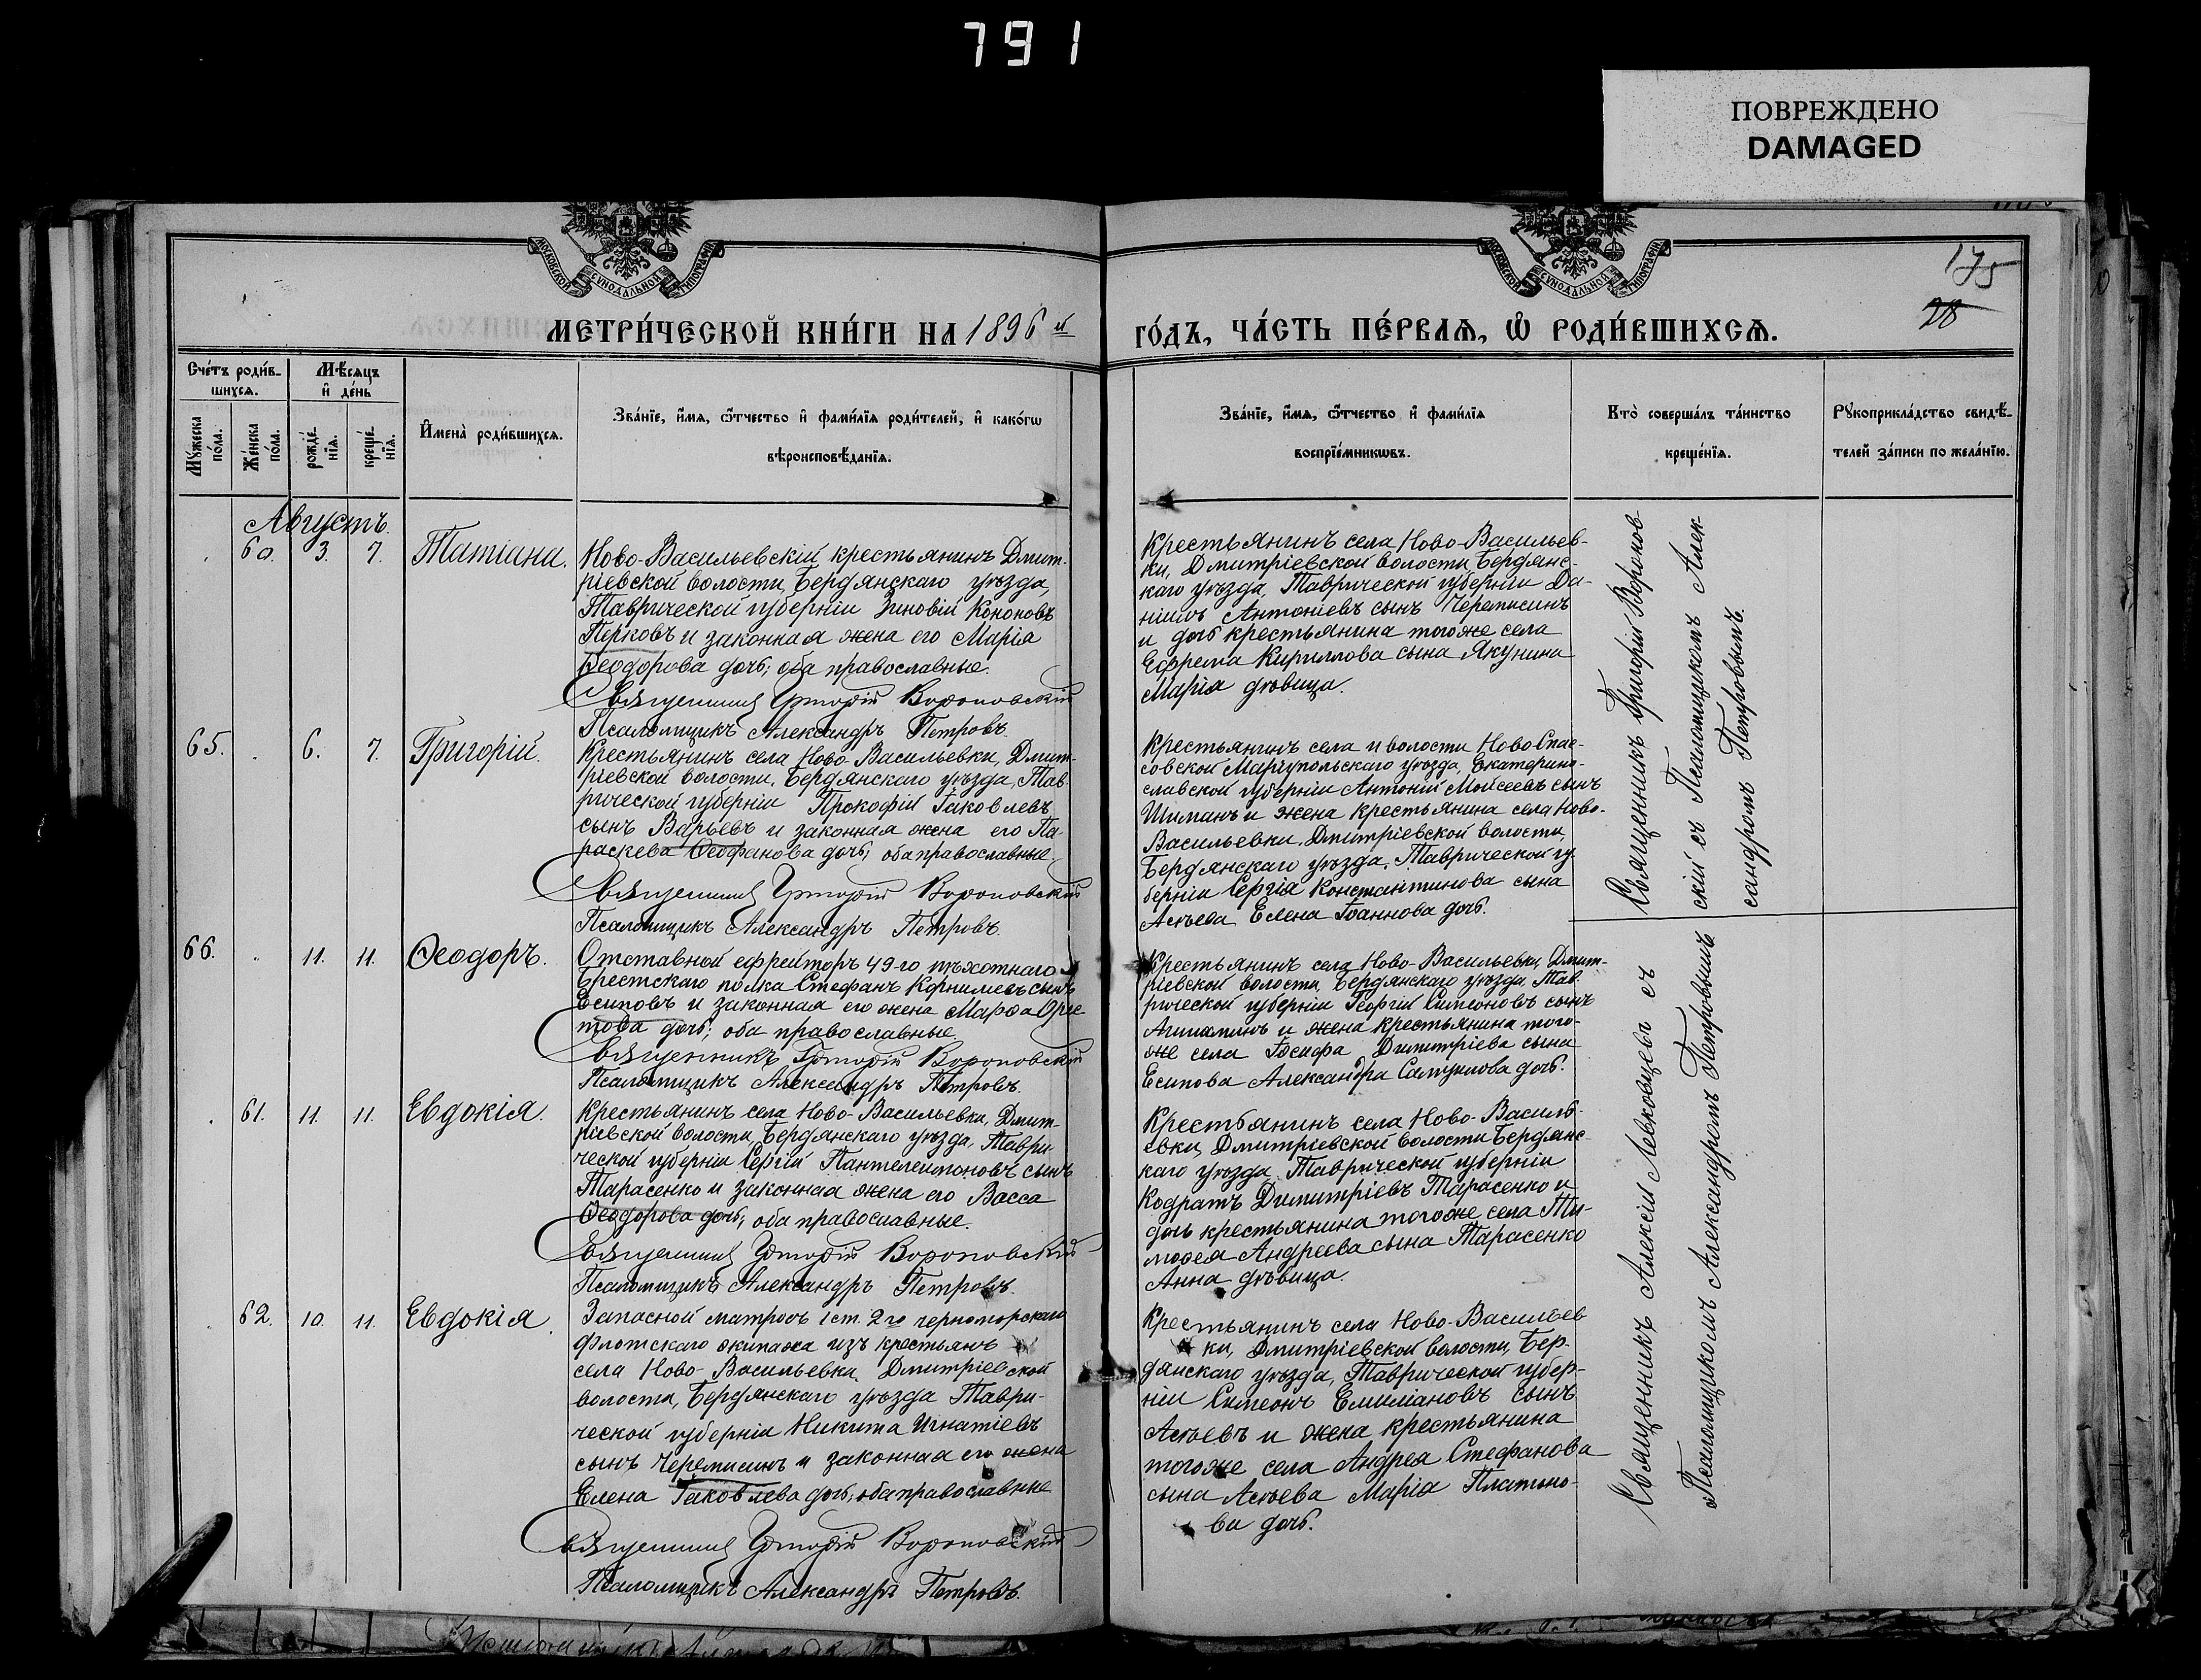 791
ПОВРЕЖДЕНО
DAMAGED
МОСКОВСКОЙ СѴНОДАЛЬНОЙ ТИПОГРАФІИ
МОСКОВСКОЙ СѴНОДАЛЬНОЙ ТИПОГРАФІИ
175
28
МЕТРИ́ЧЕСКОЙ КНИ́ГИ НА 1896 й
ГО́ДЪ, ЧА́СТЬ ПЕ́РВАЯ, Ѽ РОДИ́ВШИХСѦ.
Сче́тъ роди́в-
шихся.
Мѣ́сяцъ
и де́нь
Мꙋ́жеска по́ла.
Же́нска по́ла.
рожде́нїѧ.
креще́нїѧ.
И҆мена̀ роди́вшихсѧ.
Зва́нїе, и҆́мѧ, ѿ́чество и҆ фами́лїѧ роди́телей, и҆ како́гѡ
вѣроисповѣ́данїѧ.
Зва́нїе, и҆́мѧ, ѿ́чество и҆ фами́лїѧ
воспрїе́мникѡвъ.
Кто̀ соверша́лъ та́инство
креще́нїѧ.
Рꙋкоприкла́дство свидѣ́-
телей за́писи по жела́нїю.
Августъ.
60. 3. 7. Татіана.
Ново-Васильевскій крестьянинъ Дмит-
ріевской волости, Бердянскаго уѣзда,
Таврической губерніи Зиновій Кононовъ
Перковъ и законная жена его Марія
Ѳеодорова дочь; оба православные.
Священникъ Григорій Вороновскій
Псаломщикъ Александръ Петровъ.
Крестьянинъ села Ново-Васильев-
ки, Дмитріевской волости Бердянс-
каго уѣзда, Таврической губерніи Да-
ніилъ Антоніевъ сынъ Черемисинъ
и дочь крестьянина тогоже села
Ефрема Кириллова сына Якунина
Марія дѣвица.
65. 6. 7. Григорій.
Крестьянинъ села Ново-Васильевки, Дмит-
ріевской волости, Бердянскаго уѣзда, Тав-
рической губерніи Прокофій Іаковлевъ
сынъ Варьевъ и законная жена его Па-
раскева Ѳеофанова дочь; оба православные
Священникъ Григорій Вороновскій
Псаломщикъ Александръ Петровъ.
Крестьянинъ села и волости Ново Спас-
совской Маріупольскаго уѣзда, Екатерино-
славской губерніи Антоній Моисеевъ сынъ
Шиманъ и жена крестьянина села Ново-
Васильевки, Дмитріевской волости,
Бердянскаго уѣзда, Таврической гу-
берніи Сергія Константинова сына
Асѣева Елена Іоаннова дочь.
Священникъ Григорій Воронов-
скій съ Псаломщикомъ Алек-
сандромъ Петровымъ.
66. 11. 11. Ѳеодоръ.
Отставной ефрейторъ 49-го пѣхотнаго
Брестскаго полка Стефанъ Корнилевъ сынъ
Есиповъ и законная его жена Марѳа
дочь; оба православные
Священникъ Григорій Вороновскій
Псаломщикъ Александръ Петровъ
Крестьянинъ села Ново-Васильевки, Дмит-
ріевской волости, Бердянскаго уѣзда, Тав-
рической губерніи Георгій Симеоновъ сынъ
и жена крестьянина того-
же села Іосифа Димитріева сына
Есипова Александра Самуилова дочь.
61. 11. 11. Евдокія.
Крестьянинъ села Ново-Васильевки, Дмит-
ріевской волости, Бердянскаго уѣзда, Таври-
ческой губерніи Сергій Пантелеимоновъ сынъ
Тарасенко и законная жена его Васса
Ѳеодорова дочь; оба православные.
Священникъ Григорій Вороновскій
Псаломщикъ Александръ Петровъ.
Крестьянинъ села Ново-Василь-
евки, Дмитріевской волости Бердянс-
каго уѣзда, Таврической губерніи
Кодратъ Димитріевъ Тарасенко и
дочь крестьянина тогоже села Ти-
моѳея Андреева сына Тарасенко
Анна дѣвица.
62. 10. 11. Евдокія.
Запасной матросъ 1 ст. 2го черноморскаго
флотскаго экипажа изъ крестьянъ
села Ново-Васильевки, Дмитріевской
волости, Бердянскаго уѣзда Таври-
ческой губерніи Никита Игнатіевъ
сынъ Черемисинъ и законная его жена
Елена Іаковлева дочь; оба православные
Священникъ Григорій Вороновскій
Псаломщикъ Александръ Петровъ.
Крестьянинъ села Ново-Васильев
ки, Дмитріевской волости, Бер-
дянскаго уѣзда, Таврической губер-
ніи Симеонъ Емиліановъ сынъ
Асѣевъ и жена крестьянина
тогоже села Андрея Стефанова
сына Асѣева Марія Платоно-
ва дочь.
Священникъ Алексій Левковцевъ съ
Псаломщикомъ Александромъ Петровымъ